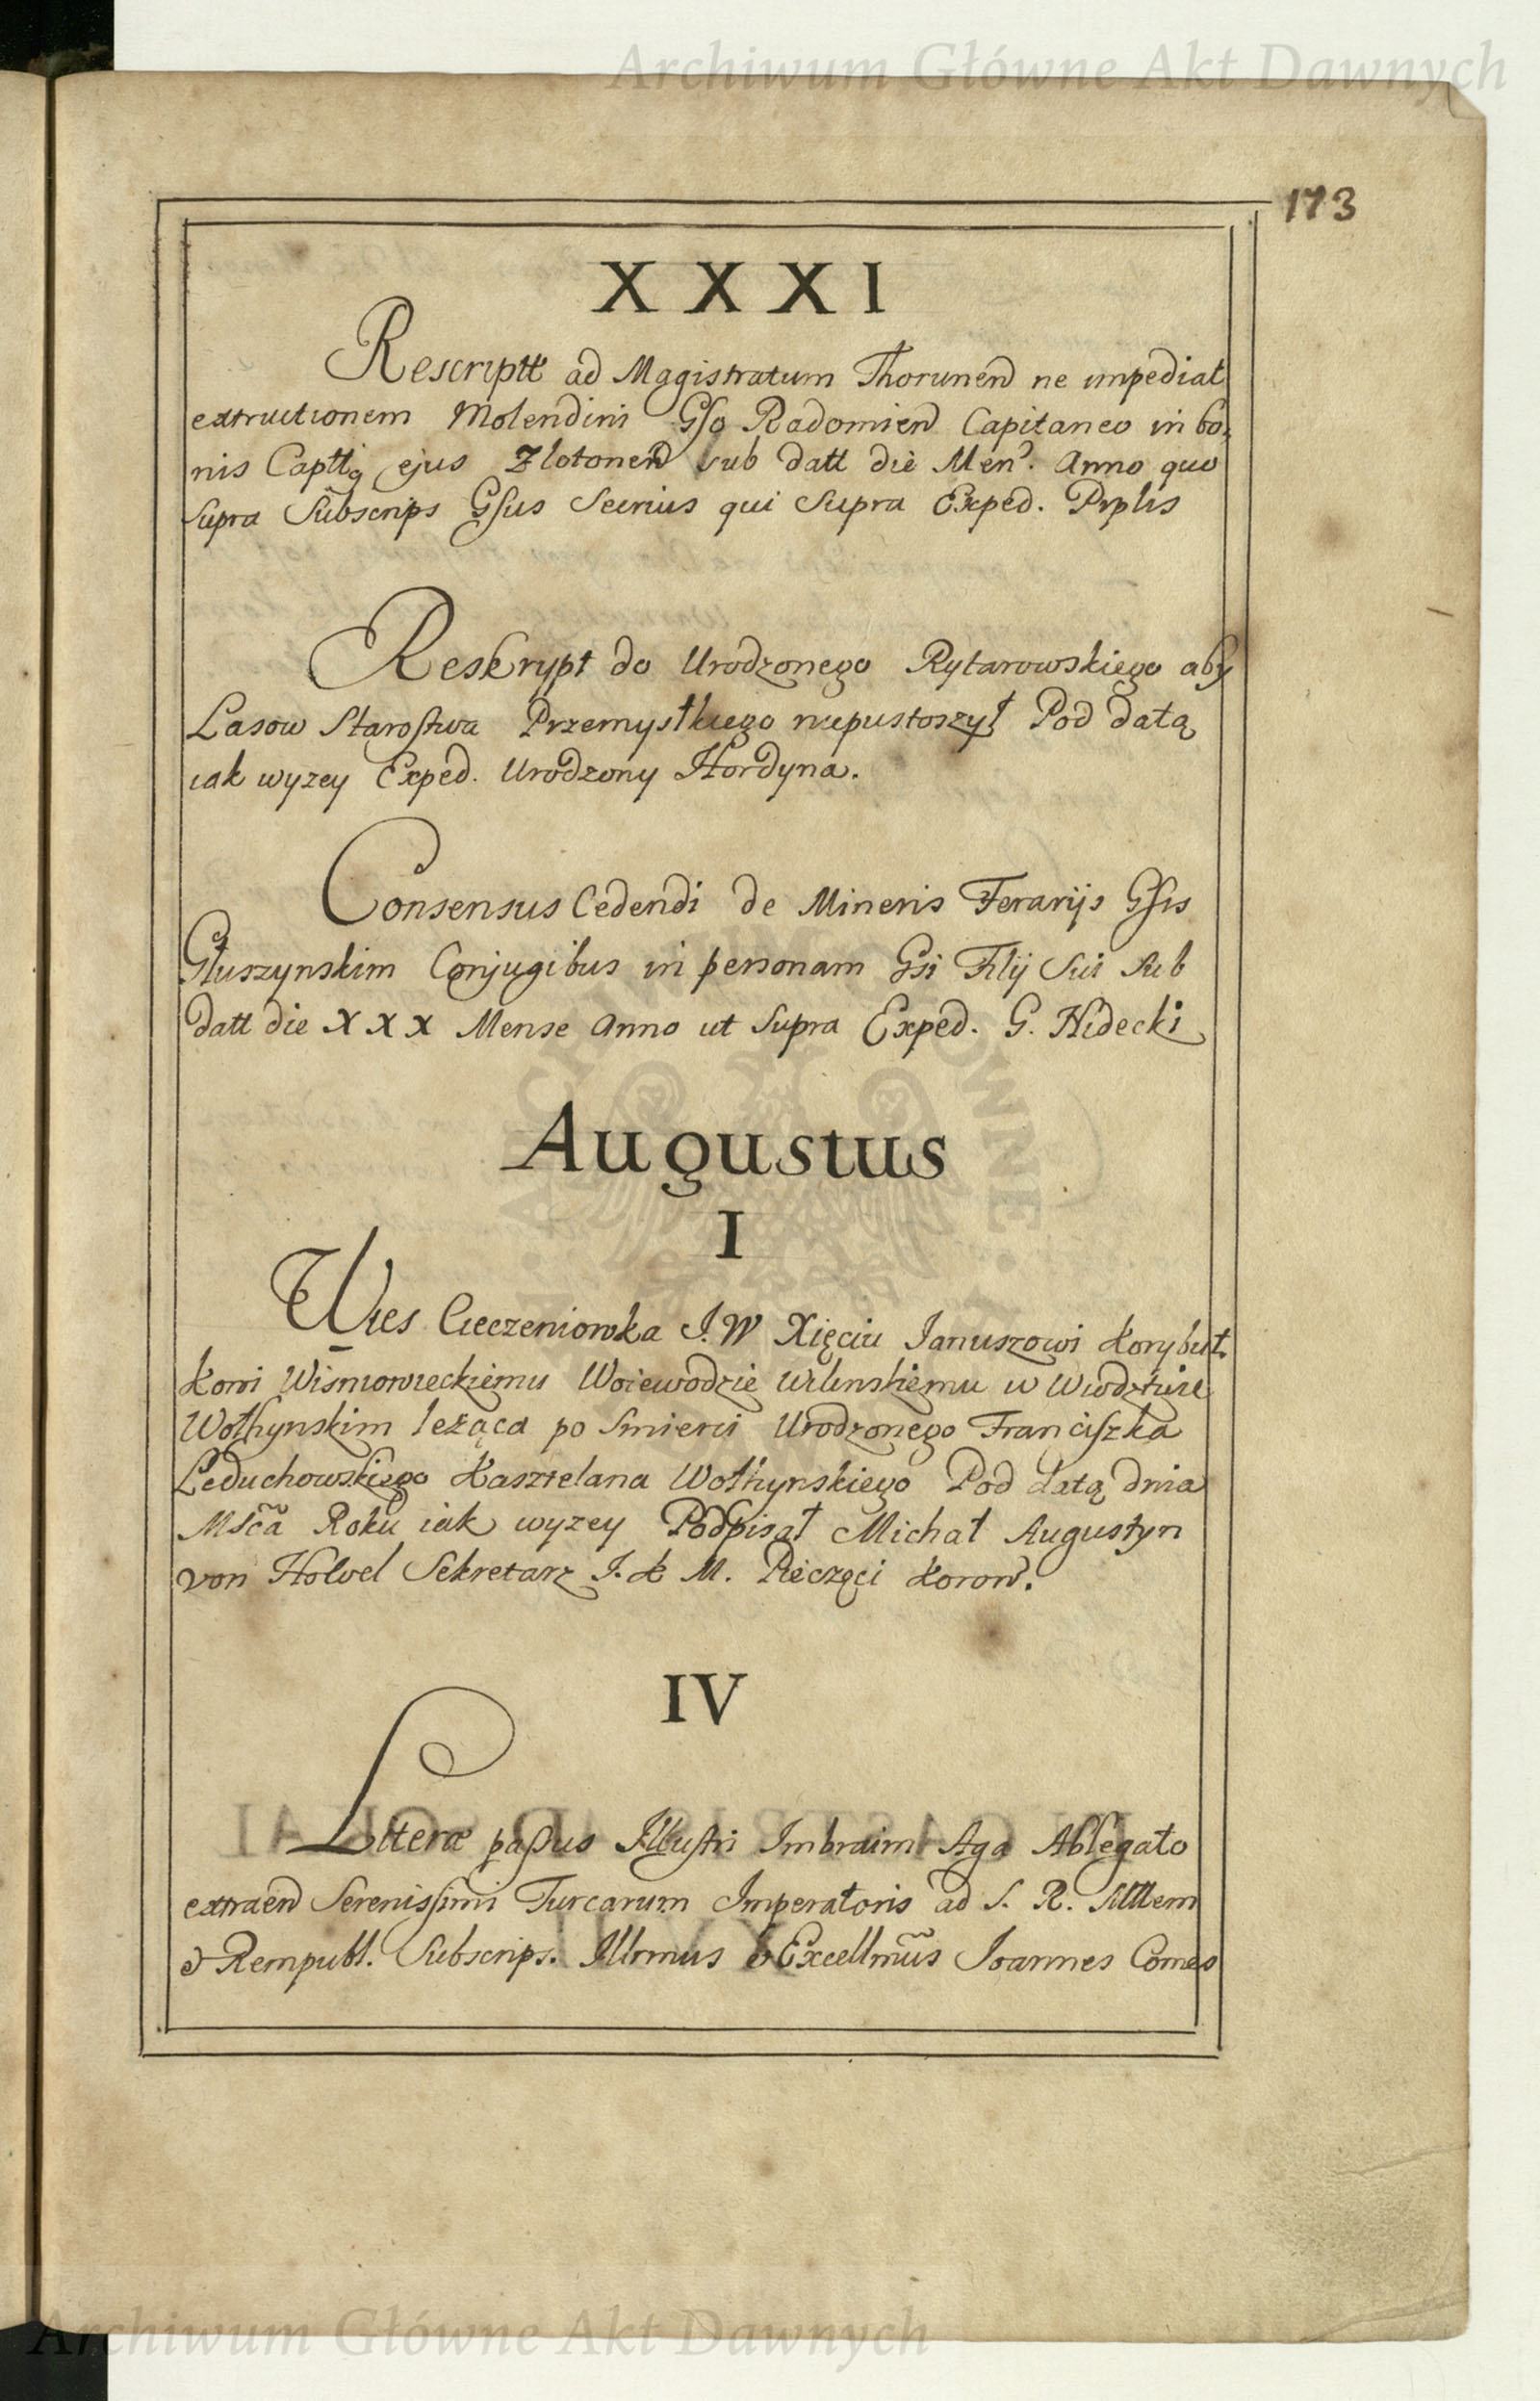 Archiwum Główne Akt Dawnych
173
XXXI
Rescriptt ad Magistratum Thorunen ne impediat
extructionem Molendini Gso Radomien Capitaneo in bo-
nis Capttq ejus Zlotonen sub datt die Men. Anno quo
supra Subscrips Gsus Secrius qui supra Exped. Prplis
Reskrypt do Urodzonego Rytarowskiego aby
Lasow Starostwa Przemyslkiego niepustoszył Pod datą
iak wyzey Exped. Urodzony Hordyna.
Consensus Cedendi de Mineris Ferarijs Gsis
Głuszynskim Conjugibus in personam Gsi Filij Sui Sub
datt die XXX Mense Anno ut Supra Exped. G. Nidecki
Augustus
I
Wies Cieczeniowka J.W Xięciu Januszowi Korybut
kowi Wisniowieckiemu Woiewodzie Wilenskiemu w
Wołhynskim leżąca po Smierci Urodzonego Franciszka
Leduchowskiego Kasztelana Wołhynskiego Pod datą dnia
Msca Roku iak wyzey Podpisał Michał Augustyn
von Holvel Sekretarz J. K M. Pieczęci Koron.
IV
Litteræ passus Illustri Imbraim Aga Ablegato
extraen Serenissimi Turcarum Imperatoris ad S. R. Mttem
& Rempubl. Subscrips. Illrmus & Excellmus Joannes Comes
Archiwum Główne Akt Dawnych